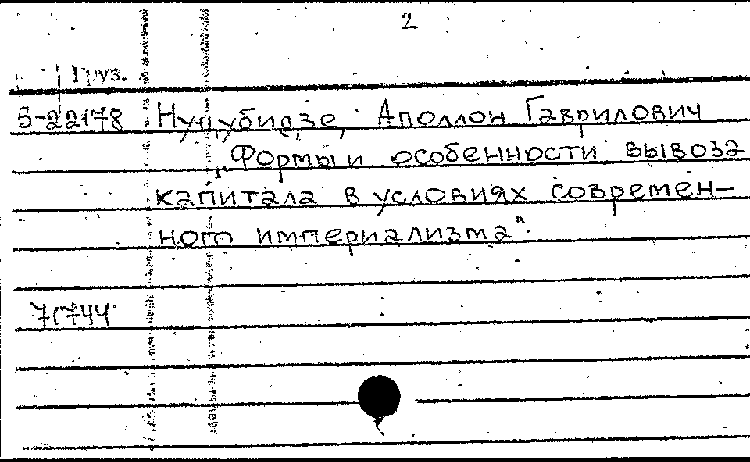 2
Груз.
Б-22178 Нуцубидзе, Аполлон Гаврилович
„Формы и особенности вывоза
капитала в условиях современ-
ного империализма".
71744